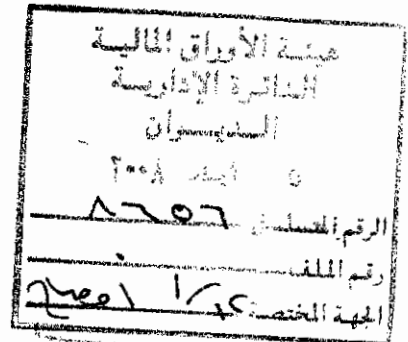 هيئة الأوراق المالية
الدائرة الإدارية
الديوان
٥ ٢٠٠٨
الرقم المتسلسل ٨٦٥٦
رقم الملف
الجهة المختصة